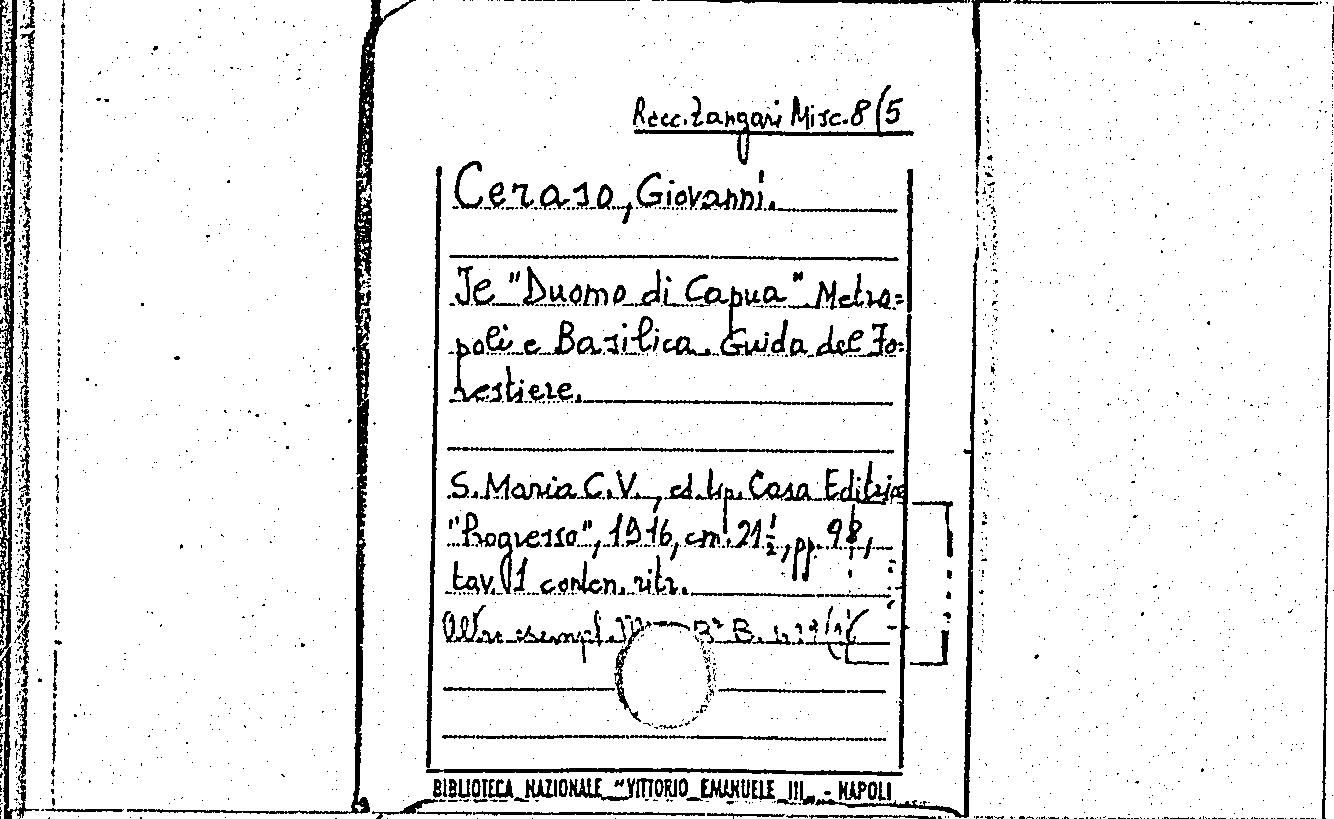 Racc. Zangari Misc. 8 (5
Ceraso, Giovanni.
Je "Duomo di Capua" Metro=
poli e Basilica. Guida del Fo=
restiere.
S. Maria C.V., ed. tip. Casa Editrice
"Progresso", 1916, cm. 21 1/2, pp. 98,
tav. 1 conten. ritr.
Altro esempl. B* B.
BIBLIOTECA NAZIONALE "VITTORIO EMANUELE III" - NAPOLI